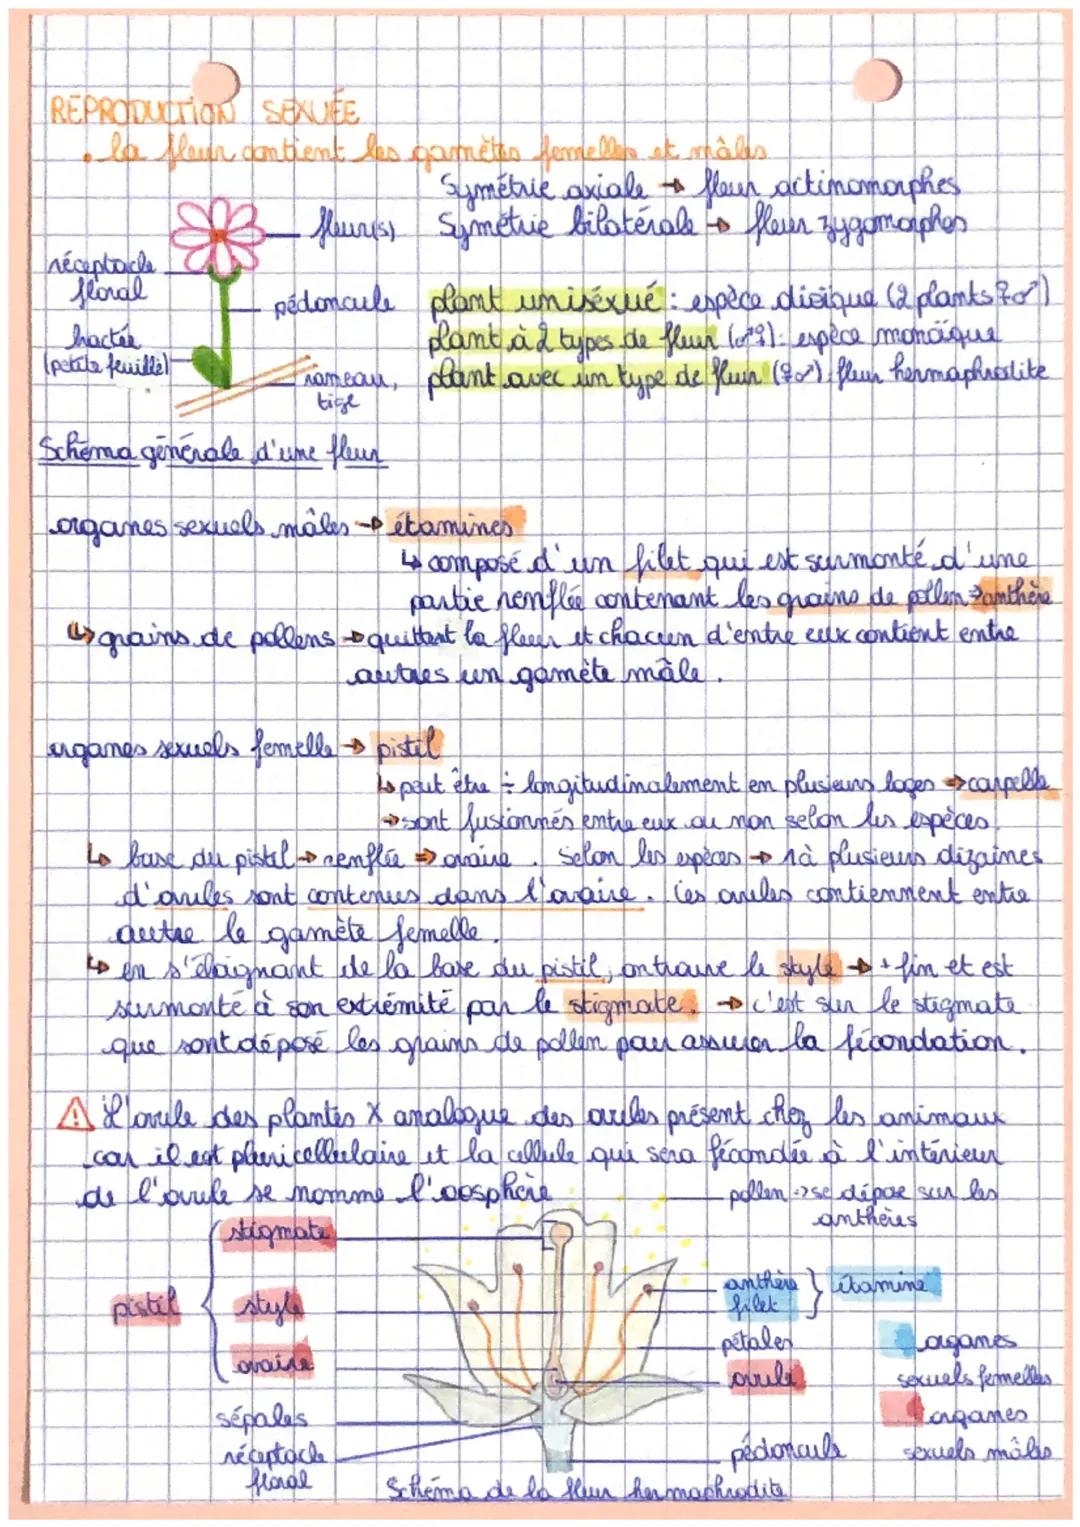 REPRODUCTION SEXUÉE
• la fleur contient les gamètes femelles et mâles
Symétrie axiale → fleur actinomorphes
fleur(s) Symétrie bilatérale → fleur zygomorphes
réceptacle
floral
pédoncule plant unisexué : espèce dioïque (2 plants ♀♂)
bractée plant à 2 types de fleur (♂♀): espèce monoïque
(petite feuille)
rameau, plant avec un type de fleur (♀♂): fleur hermaphrodite
tige
Schéma générale d'une fleur
organes sexuels mâles → étamines
↳ composé d'un filet qui est surmonté d'une
partie renflée contenant les grains de pollen → anthère
↳ grains de pollens → quittant la fleur et chacun d'entre eux contient entre
autres un gamète mâle.
organes sexuels femelle → pistil
↳ peut être ÷ longitudinalement en plusieurs loges → carpelle
→ sont fusionnés entre eux ou non selon les espèces.
↳ base du pistil → renflée ⇒ ovaire. Selon les espèces → 1 à plusieurs dizaines
d'ovules sont contenues dans l'ovaire. Ces ovules contiennent entre
autre le gamète femelle.
↳ en s'éloignant de la base du pistil, on trouve le style → + fin et est
surmonté à son extrémité par le stigmate. → c'est sur le stigmate
que sont déposé les grains de pollen pour assurer la fécondation.
⚠ L'ovule des plantes X analogue des ovules présent chez les animaux
car il est pluricellulaire et la cellule qui sera fécondée à l'intérieur
de l'ovule se nomme l'oosphère
pollen → se dépose sur les
anthères
stigmate
pistil
style
ovaire
sépales
réceptacle
floral
anthère } étamine
filet
pétales
ovule
pédoncule
organes
sexuels femelles
organes
sexuels mâles
Schéma de la fleur hermaphrodite